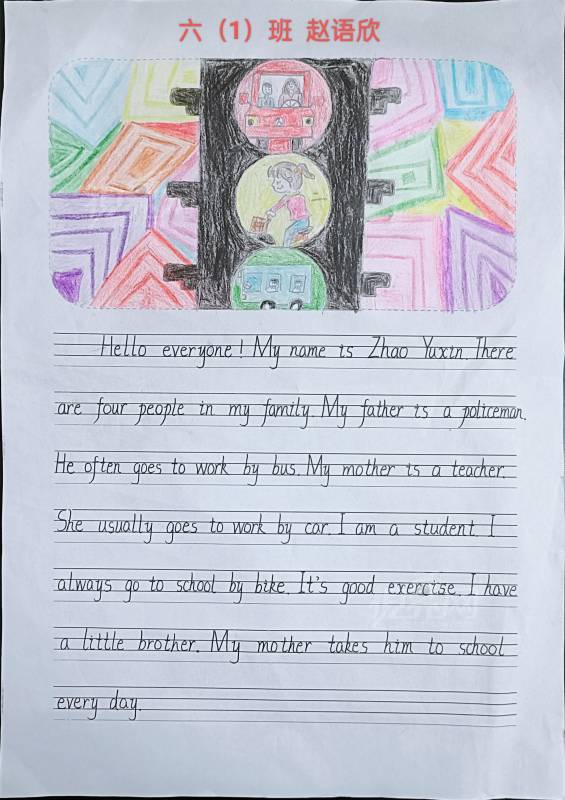 六（1）班 赵语欣
Hello everyone! My name is Zhao Yuxin. There
are four people in my family. My father is a policeman.
He often goes to work by bus. My mother is a teacher.
She usually goes to work by car. I am a student. I
always go to school by bike. It's good exercise. I have
a little brother. My mother takes him to school
every day.